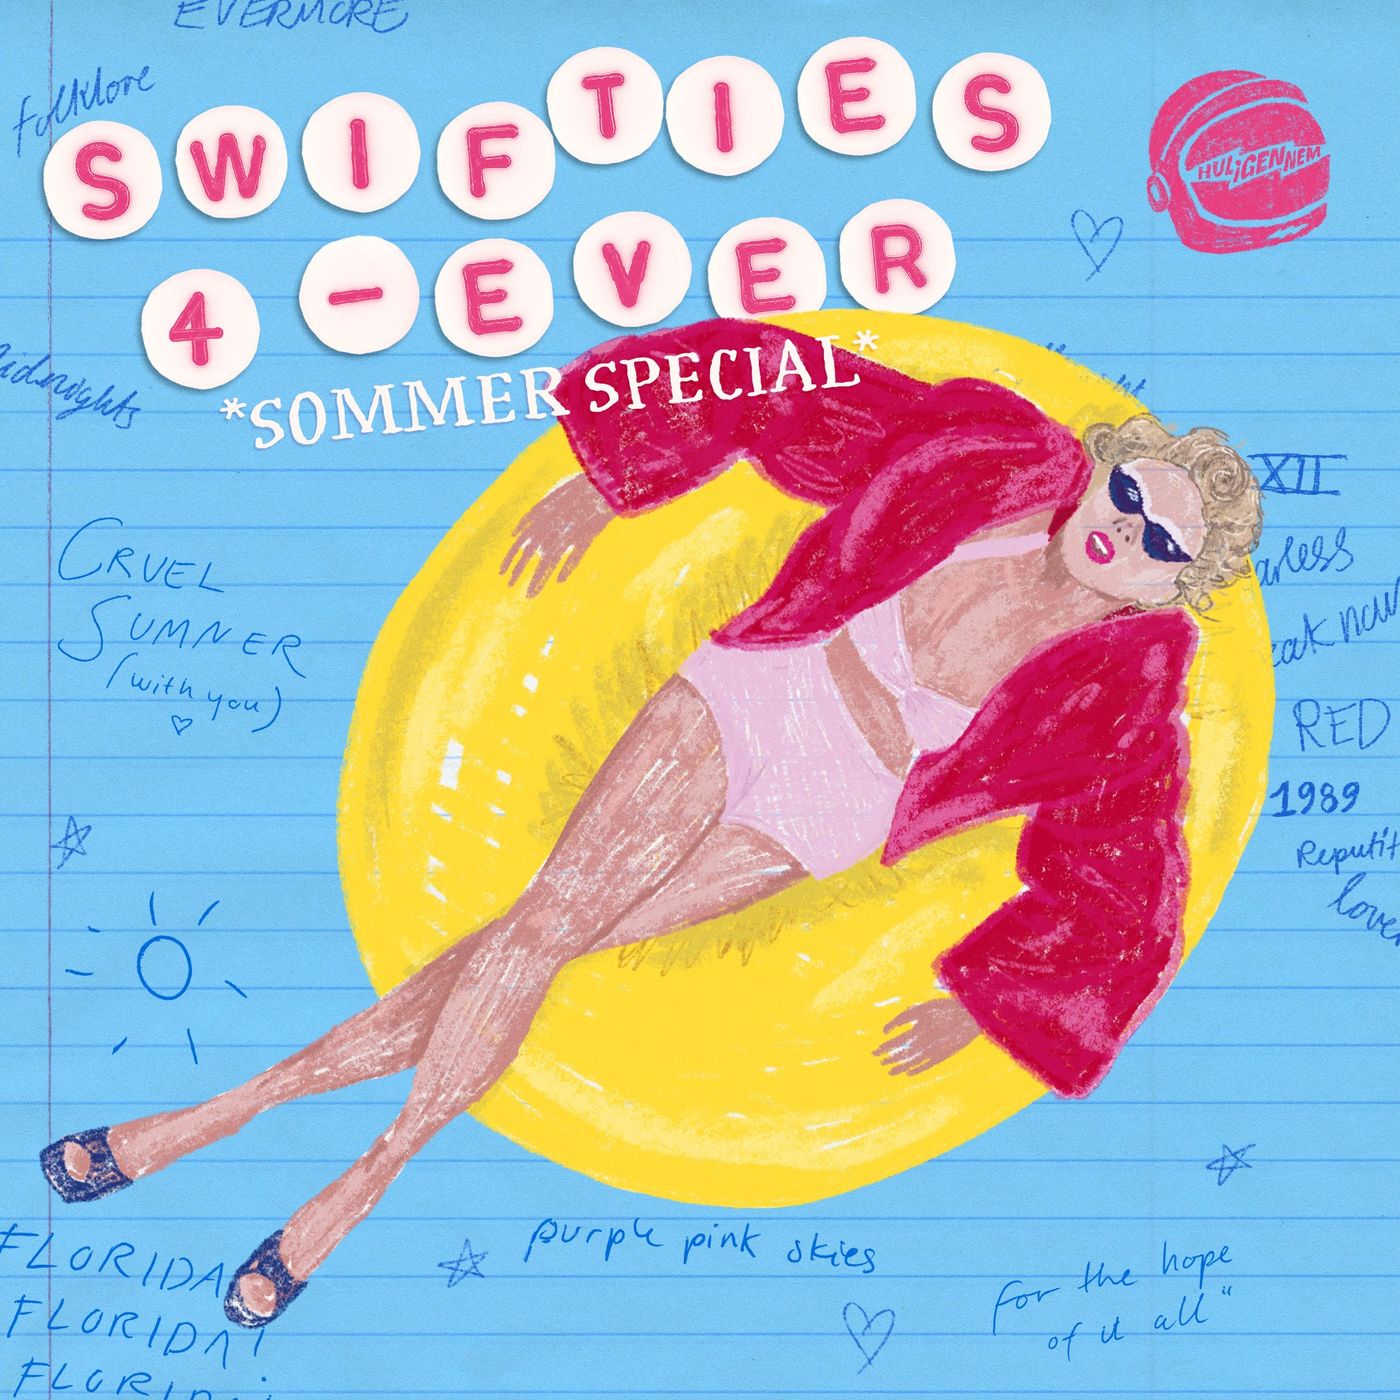 EVERMORE
folklore
SWIFTIES
HULiGENNEM
4-EVER
*SOMMER SPECIAL*
idnights
XII
CRUEL
SUMNER
(with you)
arless
eak now
RED
1989
Reputit
lover
FLORIDA
FLORIDA!
FLORIDA!
purple pink skies
for the hope
of it all"